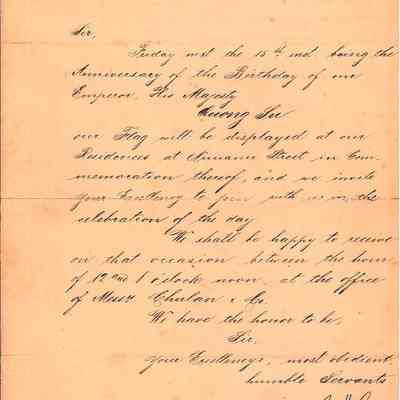 Sir,
Friday next the 15th inst being the
Anniversary of the Birthday of our
Emperor, His Majesty
Quong Su
our Flag will be displayed at our
Residences at Nuuanu Street in Com-
memoration thereof, and we invite
your Excellency to join with us in the
celebration of the day
We shall be happy to receive
on that occasion between the hour
of 12 and 1 o'clock noon, at the office
of Messr Chulan & Co.
We have the honor to be,
Sir,
your Excellency's, most obedient
humble Servants